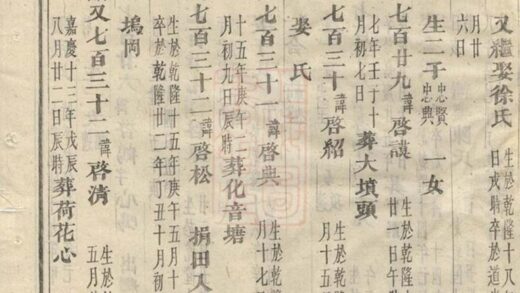 又繼娶徐氏 生於乾隆十八
日戌時卒於道
月廿
六日
生二子 忠賢 忠典 一女
七百廿九 諱啓 生於乾隆
廿一日午
七年壬子十
月初七日 葬大墳頭
七百三十 諱啓紹 生於乾
月十五
娶氏
七百三十一 諱啓典 生於乾
月十七
十五年庚午二
月初九日辰時 葬化音塘
七百三十二 諱啓松 捐田入
生於乾隆十五年庚午五月十
卒於乾隆廿二年丁丑十月初
塢岡
又七百三十二 諱啓清 生於
五月
嘉慶十三年戊辰
八月廿二日辰時 葬荷花心